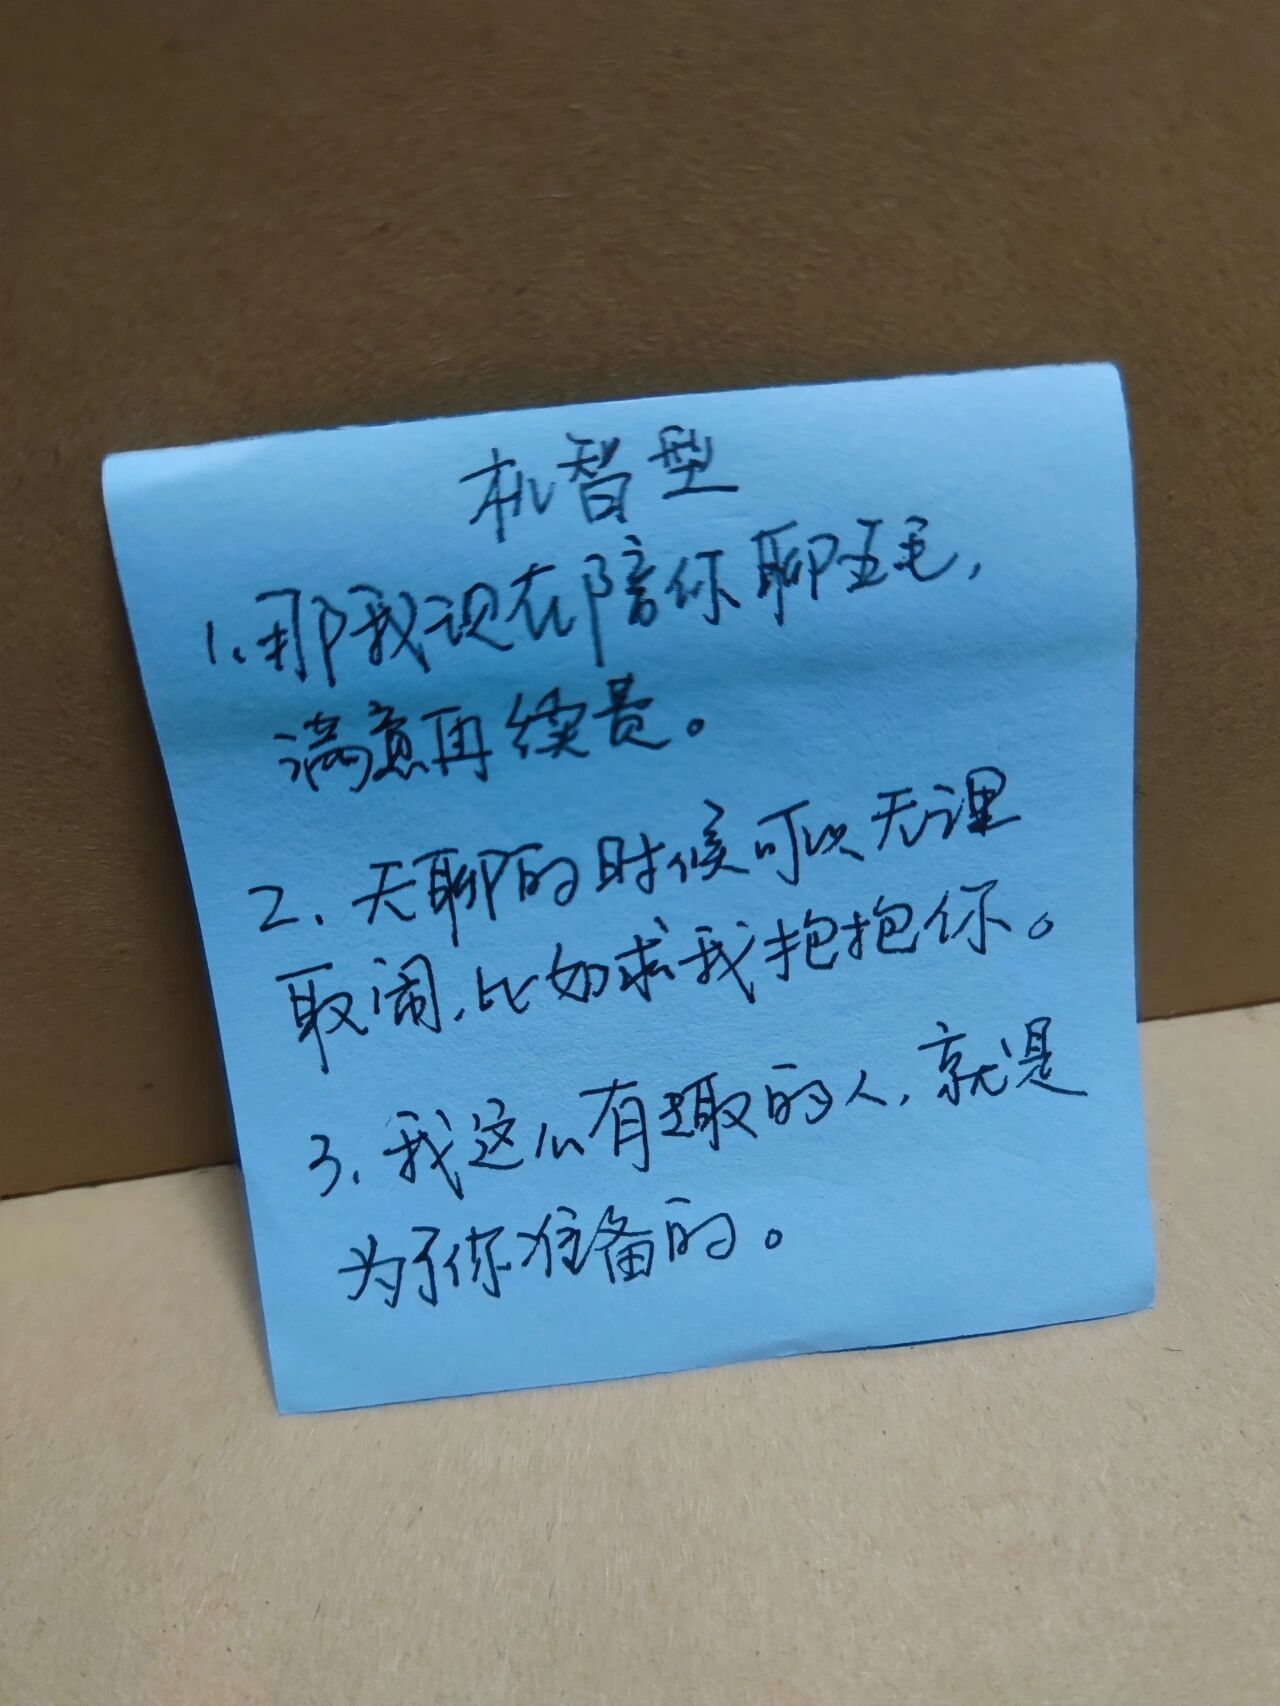 机智型
1、那我现在陪你聊五毛,
满意再续费。
2、天聊的时候可以无理
取闹,比如求我抱抱你。
3、我这么有趣的人,就是
为了你准备的。